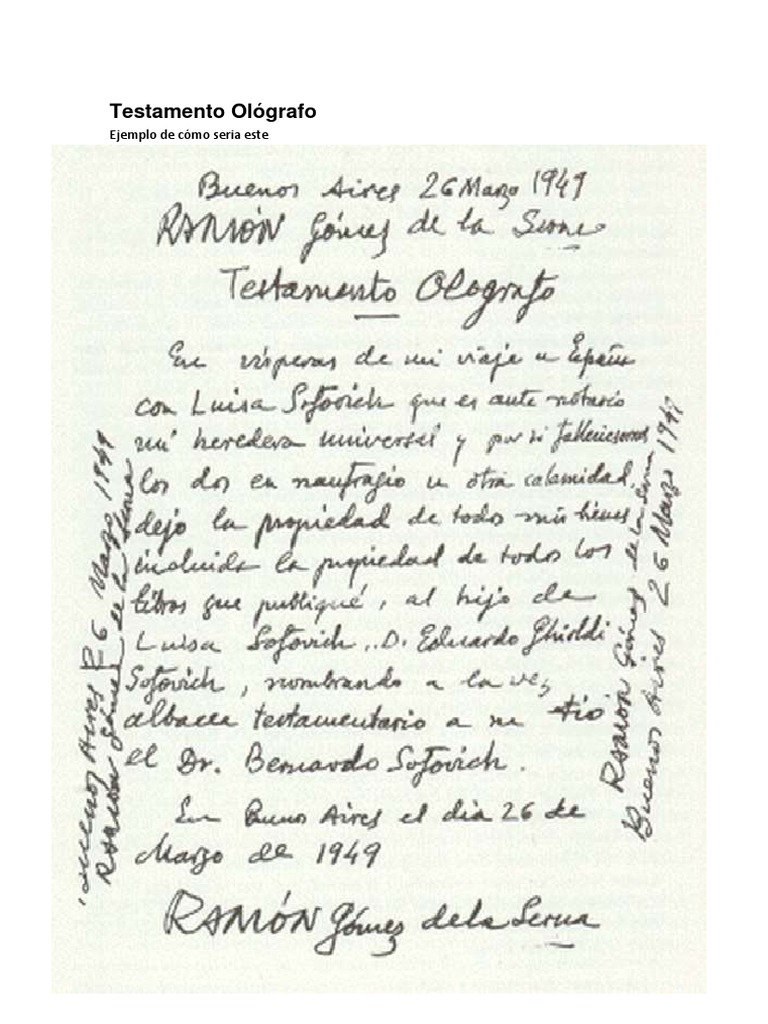 Testamento Ológrafo
Ejemplo de cómo seria este
Buenos Aires 26 Marzo 1949
RAMÓN Gómez de la Serna
Testamento Olografo
En vísperas de mi viaje a España
con Luisa Sofovich que es ante notario
mi heredera universal y por si falleciesemos
los dos en naufragio u otra calamidad,
dejo la propiedad de todos mis bienes,
incluida la propiedad de todos los
libros que publiqué, al hijo de
Luisa Sofovich, D. Eduardo Ghioldi
Sofovich, nombrando a la vez
albacea testamentario a su tío
el Dr. Bernardo Sofovich.
En Buenos Aires el dia 26 de
Marzo de 1949
RAMÓN Gómez de la Serna
Buenos Aires 26 Marzo 1949
RAMÓN Gómez de la Serna
RAMÓN Gómez de la Serna
Buenos Aires 26 Marzo 1949